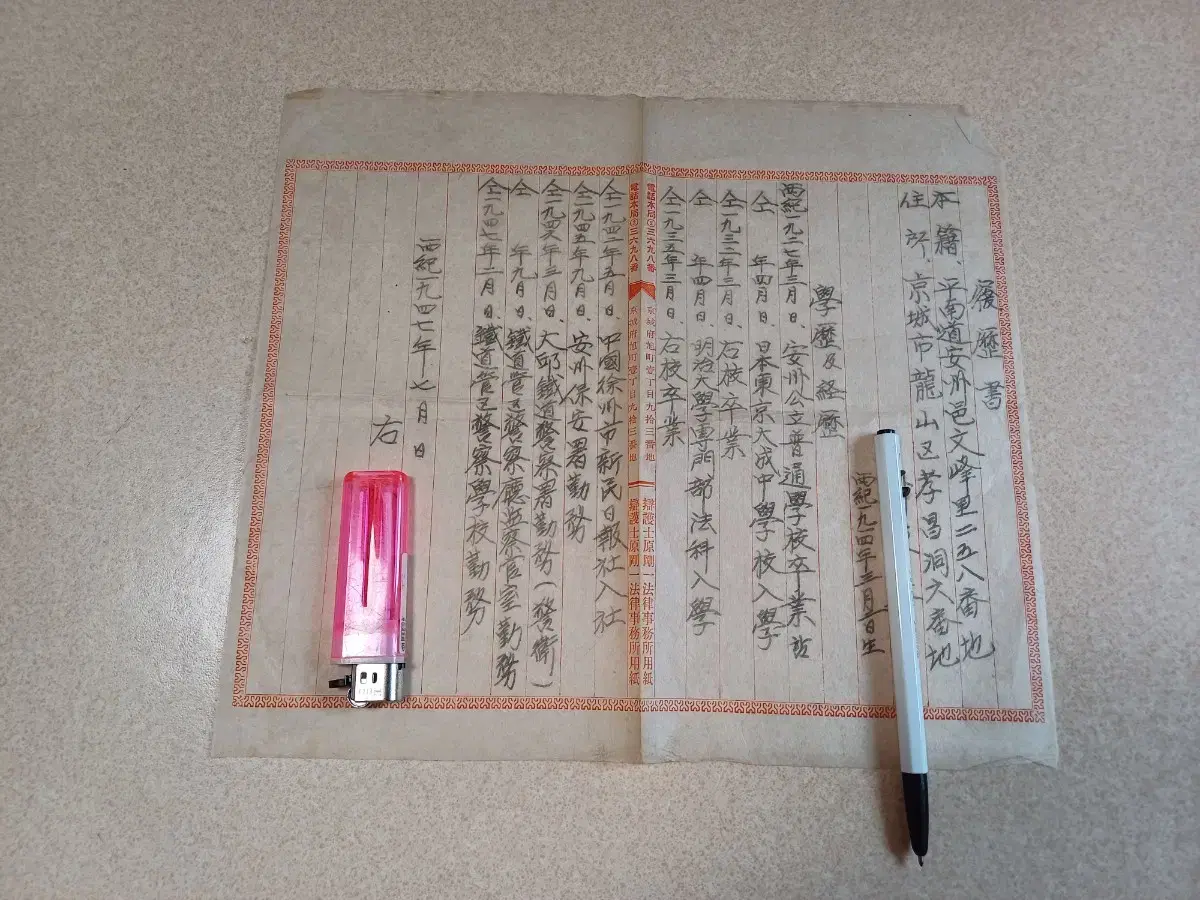 履歷書
本籍、平南道安州邑文峰里二五八番地
住所、京城市龍山区孝昌洞六番地
西紀一九一四年三月一日生
學歷及経歷
西紀一九二七年三月日、安州公立普通學校卒業
仝 年四月日、日本東京大成中學校入學
仝一九三二年三月日、右校卒業
仝 年四月日、明治大學專門部法科入學
仝一九三五年三月日、右校卒業
電話本局②三六九八番 京城府旭町壹丁目九拾三番地 辯護士原剛一法律事務所用紙
電話本局②三六九八番 京城府旭町壹丁目九拾三番地 辯護士原剛一法律事務所用紙
仝一九四二年五月日、中國徐州市新民日報社入社
仝一九四五年九月日、安州保安署勤務
仝一九四六年三月日、大邱鐵道警察署勤務(警衛)
仝 年九月日、鐵道管区警察廳監察官室勤務
仝一九四七年二月日、鐵道管区警察學校勤務
西紀一九四七年七月 日
右